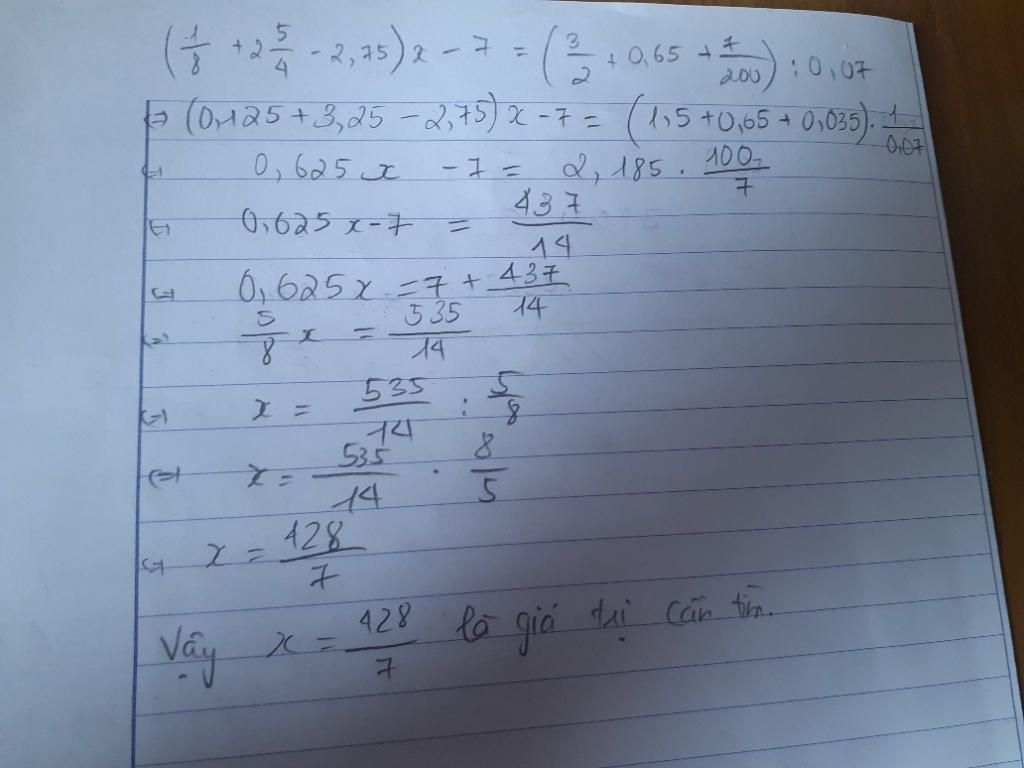 (1/8 + 2 5/4 - 2,75)x - 7 = (3/2 + 0,65 + 7/200) : 0,07
⇔ (0,125 + 3,25 - 2,75)x - 7 = (1,5 + 0,65 + 0,035) · 1/0,07
⇔ 0,625x - 7 = 2,185 · 100/7
⇔ 0,625x - 7 = 437/14
⇔ 0,625x = 7 + 437/14
⇔ 5/8 x = 535/14
⇔ x = 535/14 : 5/8
⇔ x = 535/14 · 8/5
⇔ x = 428/7
Vậy x = 428/7 là giá trị cần tìm.